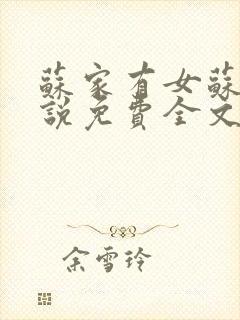 蘇家有女蘇
說免費全文
余雪玲